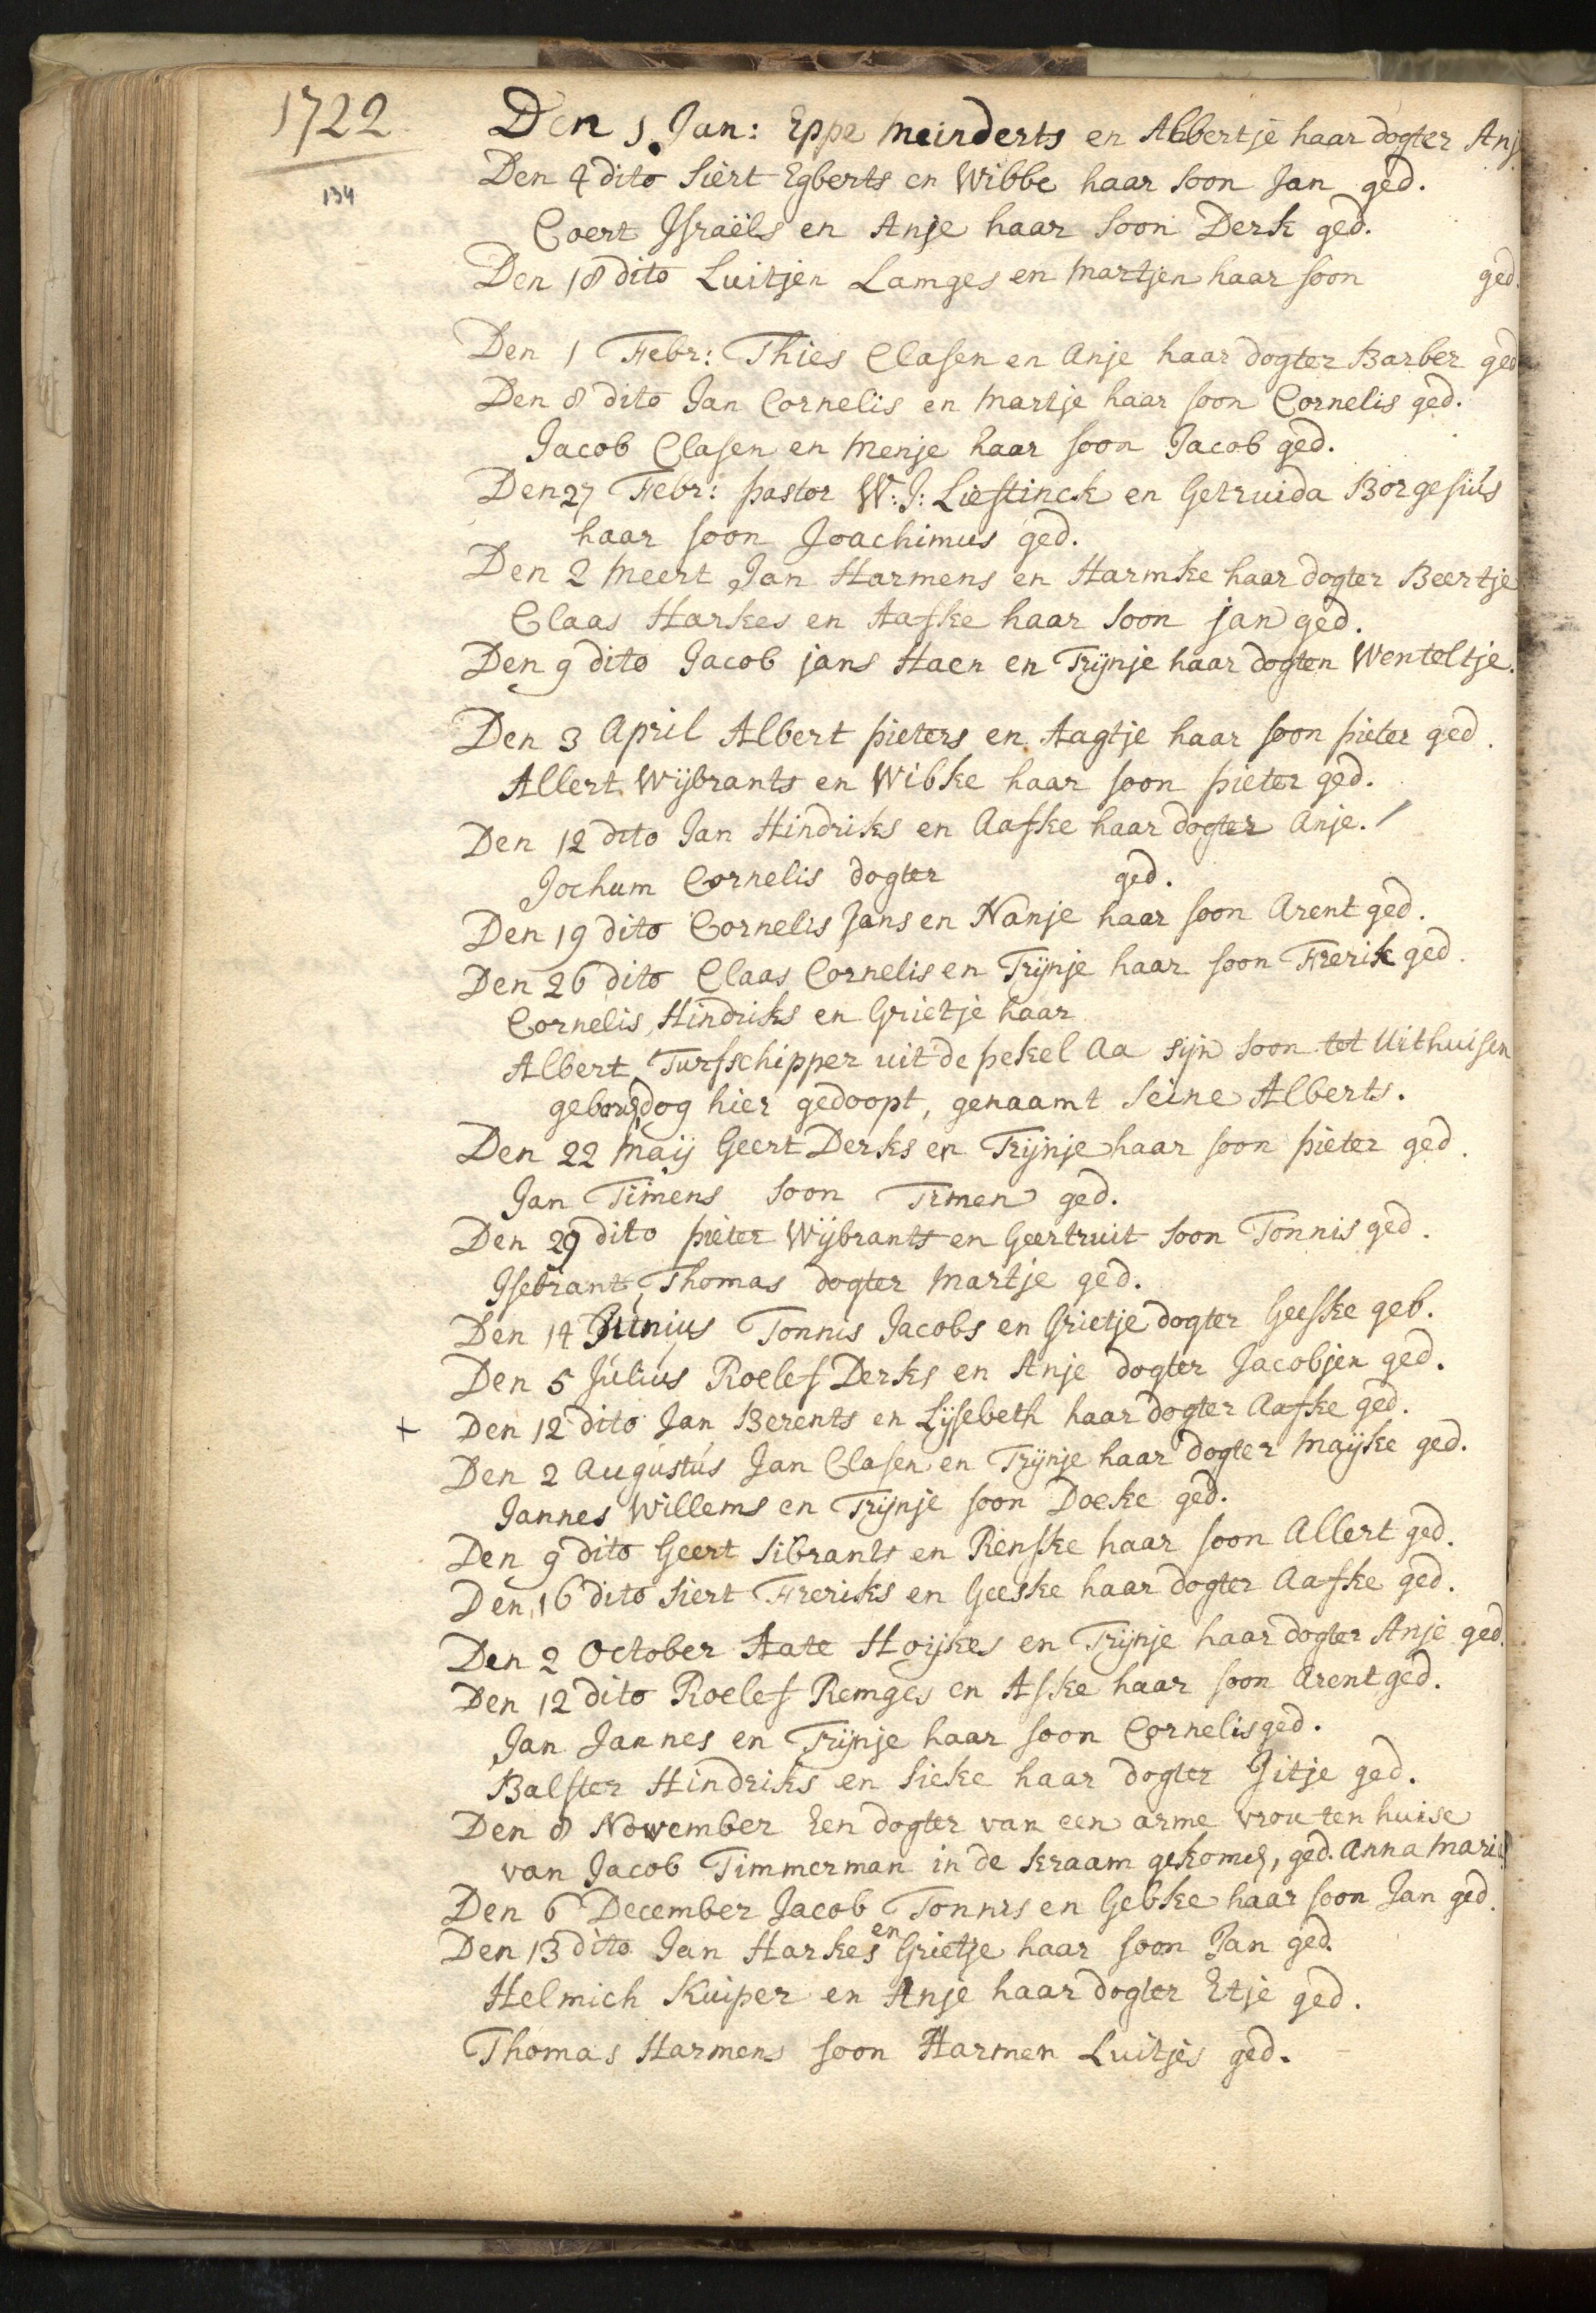 1722
134
Den 1. Jan: Eppe Meinderts en Abbertje haar dogter Anj
Den 4 dito Siert Egberts en Wibbe haar soon Jan ged.
Coert Israëls en Anje haar soon Derk ged.
Den 18 dito Luitjen Lamges en Martjen haar soon ged.
Den 1 Febr: Thies Clasen en Anje haar dogter Barber ged
Den 8 dito Jan Cornelis en Martje haar soon Cornelis ged.
Jacob Clasen en Menje haar soon Jacob ged.
Den 27 Febr: pastor W: J: Liestinck en Getruida Borgesius
haar soon Joachimus ged.
Den 2 Meert Jan Harmens en Harmke haar dogter Beertje
Claas Harkes en Aafke haar soon jan ged.
Den 9 dito Jacob jans Haen en Trijnje haar dogter Wenteltje.
Den 3 April Albert pieters en Aagtje haar soon pieter ged.
Allert Wijbrants en Wibke haar soon pieter ged.
Den 12 dito Jan Hindriks en Aafke haar dogter Anje.
Jochum Cornelis dogter ged.
Den 19 dito Cornelis Jans en Nanje haar soon Arent ged.
Den 26 dito Claas Cornelis en Trijnje haar soon Frerik ged.
Cornelis Hindriks en Grietje haar
Albert Turfschipper uit de pekel Aa sijn soon tot Uithuisen
geboren dog hier gedoopt, genaamt Seine Alberts.
Den 22 Maij Geert Derks en Trijnje haar soon pieter ged.
Jan Timens soon Timen ged.
Den 29 dito pieter Wijbrants en Geertruit soon Tonnis ged.
Isebrant Thomas dogter Martje ged.
Den 14 Junius Tonnis Jacobs en Grietje dogter Geeske geb.
Den 5 Julius Roelef Derks en Anje dogter Jacobjen ged.
+ Den 12 dito Jan Berents en Lijsebeth haar dogter Aafke ged.
Den 2 Augustus Jan Clasen en Trijnje haar dogter Maijke ged.
Jannes Willems en Trijnje soon Doeke ged.
Den 9 dito Geert Sibrants en Renske haar soon Allert ged.
Den 16 dito Siert Freriks en Geeske haar dogter Aafke ged.
Den 2 October Aate Hoijkes en Trijnje haar dogter Anje ged.
Den 12 dito Roelef Remges en Afke haar soon Arent ged.
Jan Jannes en Trijnje haar soon Cornelis ged.
Balster Hindriks en Sieke haar dogter Jitje ged.
Den 8 November Een dogter van een arme vrou ten huise
van Jacob Timmerman in de kraam gekomen, ged. Anna Maria
Den 6 December Jacob Tonnis en Gebke haar soon Jan ged.
Den 13 dito Jan Harkes en Grietje haar soon Jan ged.
Helmich Kuiper en Anje haar dogter Etje ged.
Thomas Harmens soon Harmen Luitjes ged.